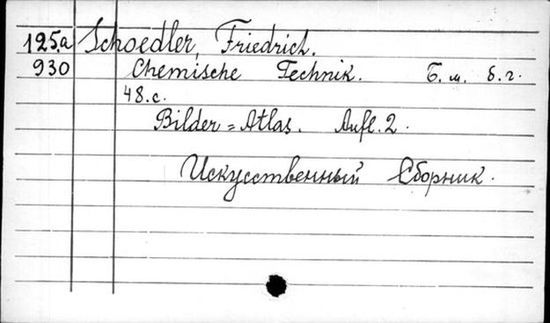 125,a Schoedler, Friedrich.
930 Chemische Technik. Б. м. б. г.
48.с.
Bilder=Atlas. Aufl. 2.
Искусственный Сборник.